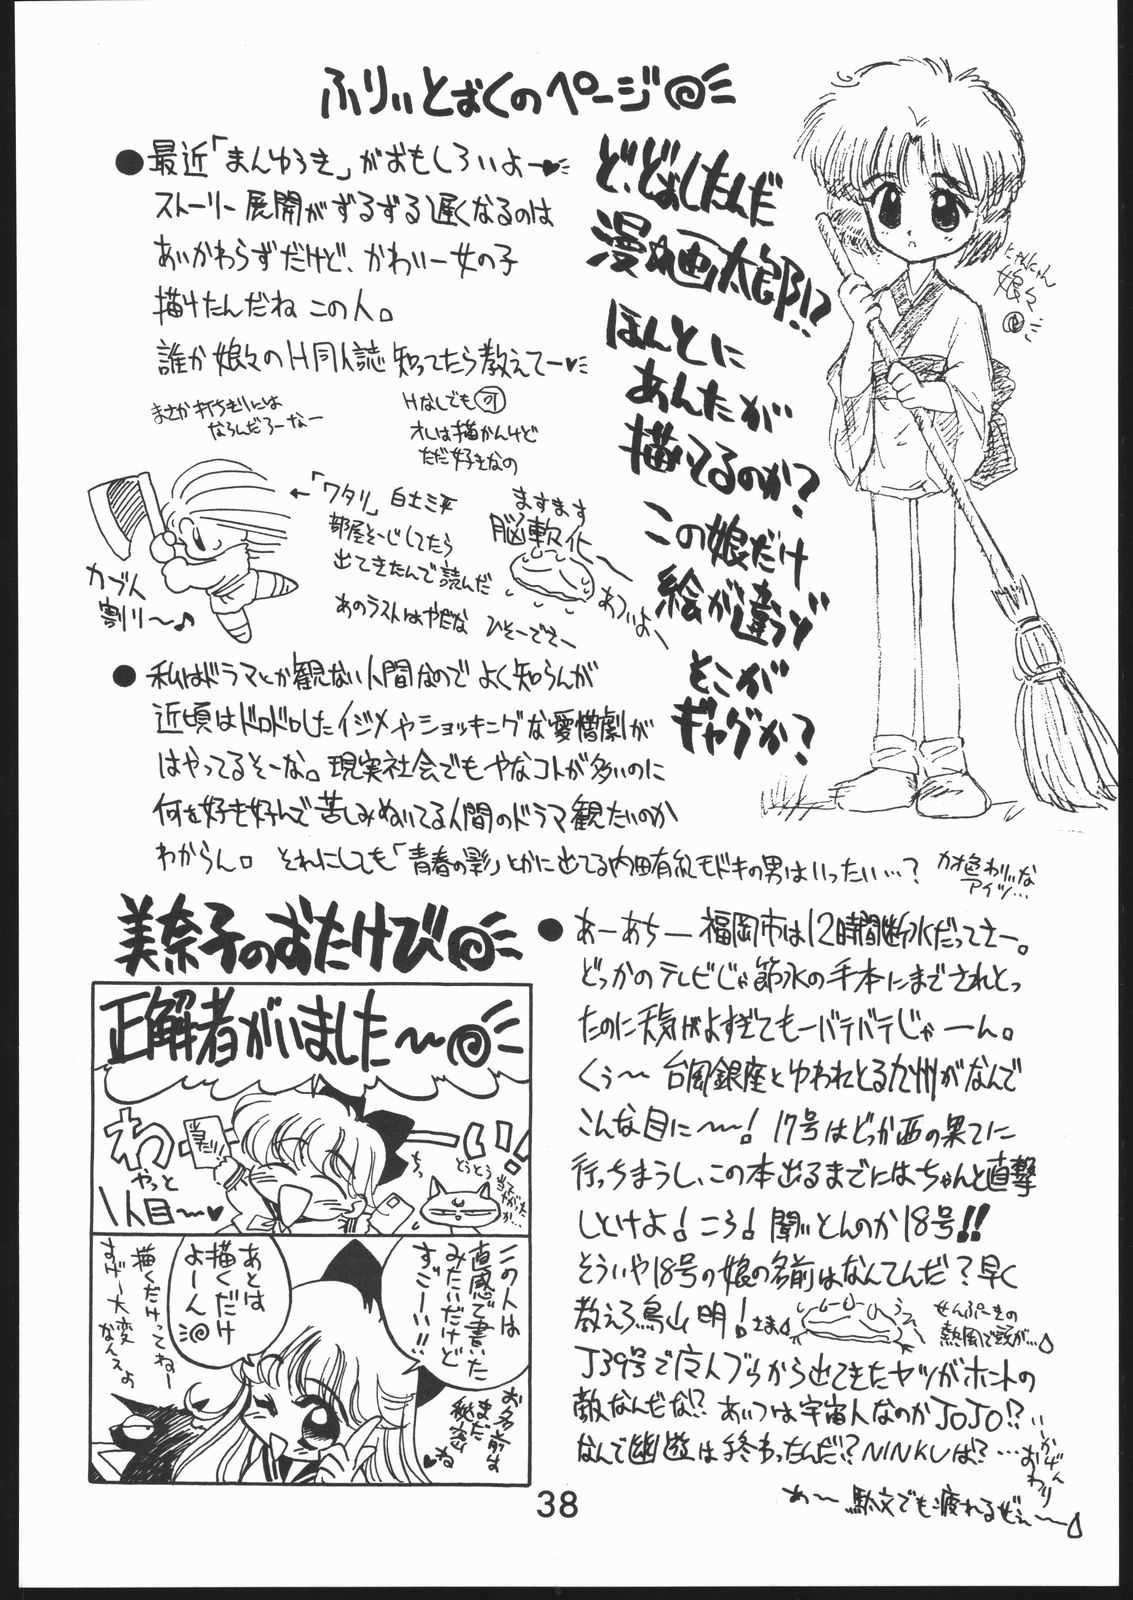 ふりぃとおくのページ
●最近「まんゆうき」がおもしろいよー♥
ストーリー展開がずるずる遅くなるのは
あいかわらずだけど、かわいー女の子
描けたんだね この人。
誰か娘々のH同人誌知ってたら教えてー♥
まさか打ちぎりには
ならんだろーなー
Hなしでも可
オレは描かんけど
ただ好きなの
ど、どおしたんだ
漫☆画太郎!?
ほんとに
あんたが
描いてるのか?
この娘だけ
絵が違うぞ
どこが
ギャグか?
にゃんにゃん
娘々
←「ワタリ」白土三平
部屋そーじしてたら
出てきたんで読んだ
あのラストはやだな ひそーでさー
カブト
割り〜♪
ますます
脳軟化〜
あついよ〜
●私はドラマとか観ない人間なのでよく知らんが
近頃はドロドロしたイジメやショッキングな愛憎劇が
はやってるそーな。現実社会でもやなコトが多いのに
何を好き好んで苦しみぬいてる人間のドラマ観たいのか
わからん。それにしても「青春の影」とかに出てる内田有紀モドキの男はいったい…?
カオ色わりぃな
アイツ…
美奈子のおたけび
正解者がいました〜
わーい!
やっと
1人目〜♥
ちっ
とうとう
この人は
直感で書いた
みたいだけど
すごーい!!
お名前は
まだ
秘密
♥ね
あとは
描くだけ
よーん
描くだけってねー
すげー大変
なんスよ
●あーあちー 福岡市は12時間断水だってさー。
どっかのテレビじゃ節水の手本にまでされとっ
たのに天気がよすぎてもーバテバテじゃーん。
くぅ〜 台風銀座とゆわれとる九州がなんで
こんな目に〜〜! 17号はどっか西の果てに
行っちまうし、この本出るまでにはちゃんと直撃
しとけよ!こら!聞いとんのか18号!!
そういや18号の娘の名前はなんてんだ?早く
教えろ鳥山明!さま
せんぷーきの
熱風で頭が…
J39号で広人ブッちから出てきたヤツがホントの
敵なんだな!? あいつは宇宙人なのかJOJO!?
なんで幽遊は終わったんだ!? NINKUは?…
いかげん
おわり
あ〜 駄文でも疲れるぜぇ〜
38